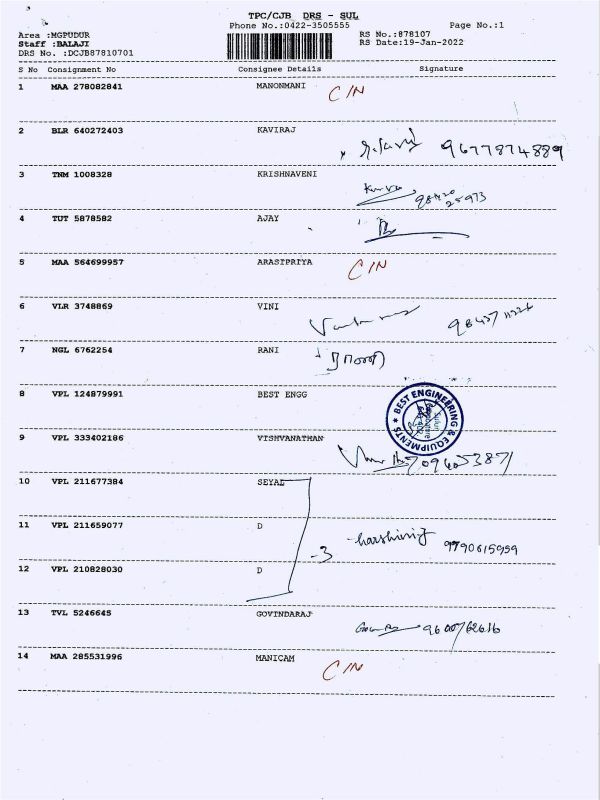 TPC/CJB DRS - SUL
Phone No.:0422-3505555 Page No.:1
Area :MGPUDUR RS No.:878107
Staff :BALAJI RS Date:19-Jan-2022
DRS No. :DCJB87810701
S No Consignment No Consignee Details Signature
1 MAA 278082841 MANONMANI C/N
2 BLR 640272403 KAVIRAJ 9677874889
3 TNM 1008328 KRISHNAVENI
4 TUT 5878582 AJAY
5 MAA 564699957 ARASIPRIYA C/N
6 VLR 3748869 VINI
7 NGL 6762254 RANI
8 VPL 124879991 BEST ENGG
BEST ENGINEERING & EQUIPMENTS
9 VPL 333402186 VISHVANATHAN
10 VPL 211677384 SEYAL
11 VPL 211659077 D 9790615959
-3
12 VPL 210828030 D
13 TVL 5246645 GOVINDARAJ
14 MAA 285531996 MANICAM C/N